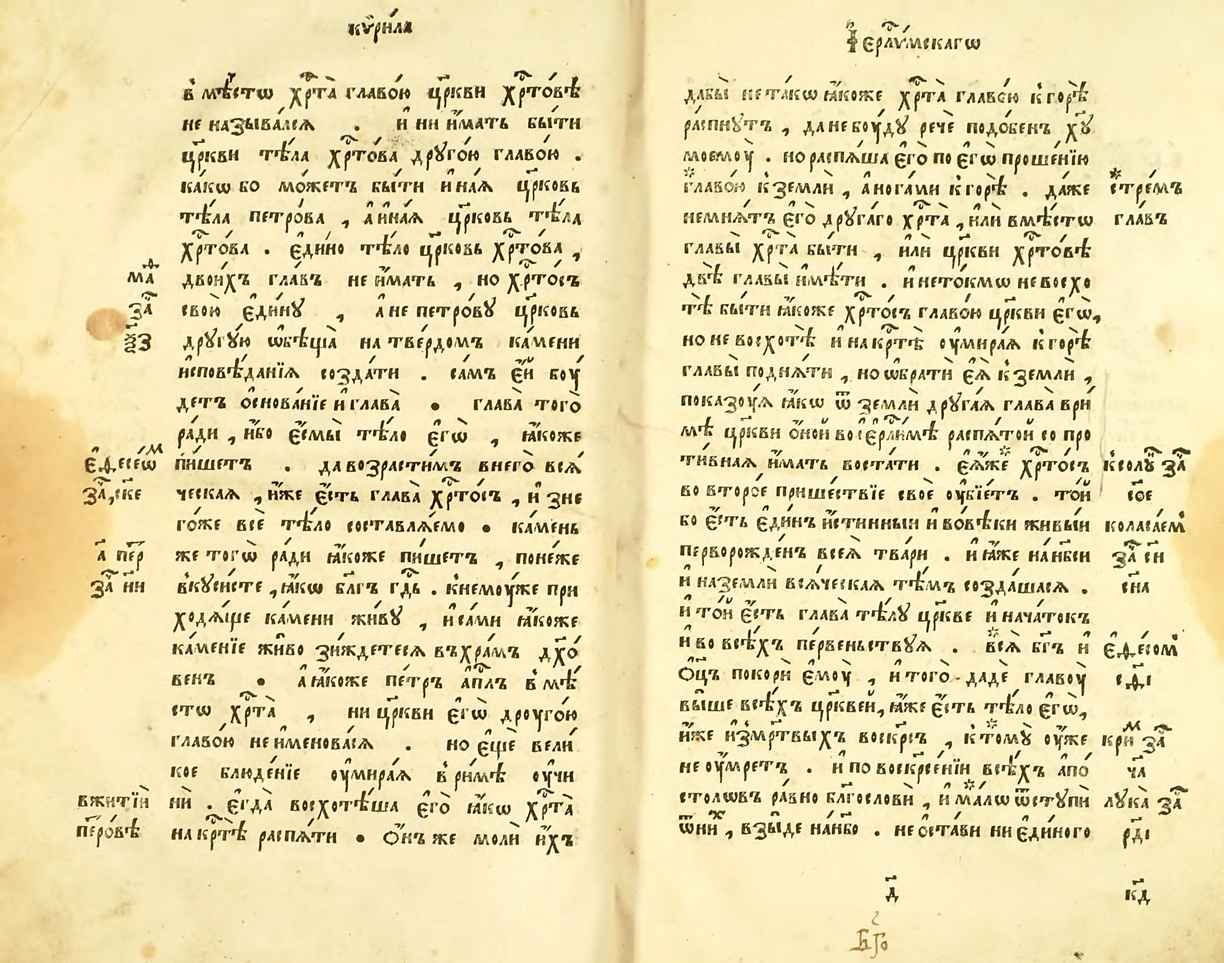 кѷри́ла
в̾мѣ́стѡ хр҇та̀ главо́ю цр҃кви хр҇то́вѣ
не называ́лсѧ . и҆ ни и҆́мать бы́ти
цр҃кви тѣ́ла хр҇то́ва друго́ю главо́ю .
ка́кѡ бо мо́жетъ бы́ти и҆на́ѧ цр҃ковь
тѣ́ла петро́ва , а҆ и҆на́ѧ цр҃ковь тѣ́ла
хр҇то́ва . є҆ди́но тѣ́ло цр҃ковь хр҇то́ва ,
двои́хъ гла́въ не и҆́мать , но хр҇то́съ
свою̀ є҆ди́ну , а҆ не петро́ву цр҃ковь
другу́ю ѡ҆бѣща̀ на тве́рдомъ ка́мени
и҆сповѣ́данїѧ созда́ти . са́мъ є҆́й бꙋ́
детъ ѻ҆снова́нїе и҆ глава̀ • глава̀ того̀
ра́ди , и҆́бо є҆смы̀ тѣ́ло є҆гѡ̀ , ꙗ҆́коже
пи́шетъ . да возрасти́мъ в̾него̀ всѧ́
ческаѧ , и҆́же є҆́сть глава̀ хр҇то́съ , и҆з̾ не
го́же всѐ тѣ́ло составлѧ́емо • ка́мень
же тогѡ̀ ра́ди ꙗ҆́коже пи́шетъ , поне́же
вкуси́сте , ꙗ҆́кѡ бл҃гъ гд҇ь . к̾немꙋ́же при
ходѧ́ще ка́мени жи́ву , и҆ са́ми ꙗ҆́коже
ка́менїе жи́во зи́ждетесѧ въ хра́мъ дх҃о́
венъ • а҆ ꙗ҆́коже пе́тръ а҆п҇лъ в̾мѣ́
стѡ хр҇та̀ , ни цр҃кви є҆гѡ̀ дрꙋго́ю
главо́ю не и҆менова́сѧ . но є҆щѐ вели́
кое блюде́нїе ᲂу҆мира́ѧ в̾ ри́мѣ ᲂу҆чи
нѝ . є҆гда̀ восхотѣ́ша є҆го̀ ꙗ҆́кѡ хр҇та̀
на кр҇тѣ̀ распѧ́ти • ѻ҆́нъ же молѝ и҆́хъ
ма҇д
за҃
ѯ҃з
є҆фесе́ѡм
за҃ , ске
а҃ пе́р
за҃ ни
в̾жи́тїй
пе́ровѣ
І҆ерл҇и́мскагѡ
дабы̀ не та́кѡ ꙗ҆́коже хр҇та̀ главо́ю к̾ го́рѣ
ра́спнутъ , да не бꙋ́ду речѐ подо́бенъ хꙋ҃
моемꙋ̀ . но распѧ́ша є҆го̀ по є҆гѡ̀ проше́нїю
главо́ю к̾ землѝ , а҆ нога́ми к̾ го́рѣ . да́же
не мнѧ́тъ є҆го̀ друга́го хр҇та̀ , и҆лѝ в̾мѣ́стѡ
главы̀ хр҇та̀ бы́ти , и҆лѝ цр҃кви хр҇то́вѣ
двѣ̀ главы̀ и҆мѣ́ти . и҆ не то́кмѡ не восхо
тѣ̀ бы́ти ꙗ҆́коже хр҇то́съ главо́ю цр҃кви є҆гѡ̀,
но не восхотѣ̀ и҆ на кр҇тѣ̀ ᲂу҆мира́ѧ к̾ го́рѣ
главы̀ поднѧ́ти , но ѡ҆братѝ є҆ѧ̀ к̾ землѝ ,
показꙋ́ѧ ꙗ҆́кѡ ѿ землѝ друга́ѧ глава̀ в̾ри́
мѣ цр҃кви ѻ҆́ной во і҆ерл҇и́мѣ распѧ́той со про
ти́внаѧ и҆́мать воста́ти . є҆ѧ́же хр҇то́съ
во второ́е прише́ствїе своѐ ᲂу҆бїе́тъ . то́й
бо є҆́сть є҆ди́нъ и҆́стинныи и҆ во́вѣки живы́и
перворожде́нъ всеѧ̀ тва́ри . и҆ ꙗ҆́же на нб҃си
и҆ на землѝ всѧ́ческаѧ тѣ́мъ созда́шасѧ .
и҆ то́й є҆́сть глава̀ тѣ́лу цр҃кве и҆ нача́токъ
и҆ во всѣ́хъ пе́рвеньствуѧ . всѧ̀ бг҃ъ и҆
ѻ҆ц҃ъ покорѝ є҆мꙋ̀ , и҆ того̀ дадѐ главꙋ̀
вы́ше всѣ́хъ цр҃кве́й, ꙗ҆́же є҆́сть тѣ́ло є҆гѡ̀,
и҆́же и҆з̾ме́ртвыхъ воскр҃съ , к̾ тому̀ ᲂу҆́же
не ᲂу҆́мретъ . и҆ по воскр҃се́нїи всѣ́хъ а҆по́
столѡвъ ра́вно бл҃гословѝ , и҆ ма́лѡ ѿступѝ
ѿ ни́х , взы́де на нб҃о . не ѡ҆ста́ви ни є҆ди́ного
стре́мъ
гла́въ
к̾ солу҃ за҃
сое
колаѕаем
за҃ сн
сна
є҆фе́сом
сфі
кри́м за҃
ча
лука̀ за҃
рді
д҃
кд